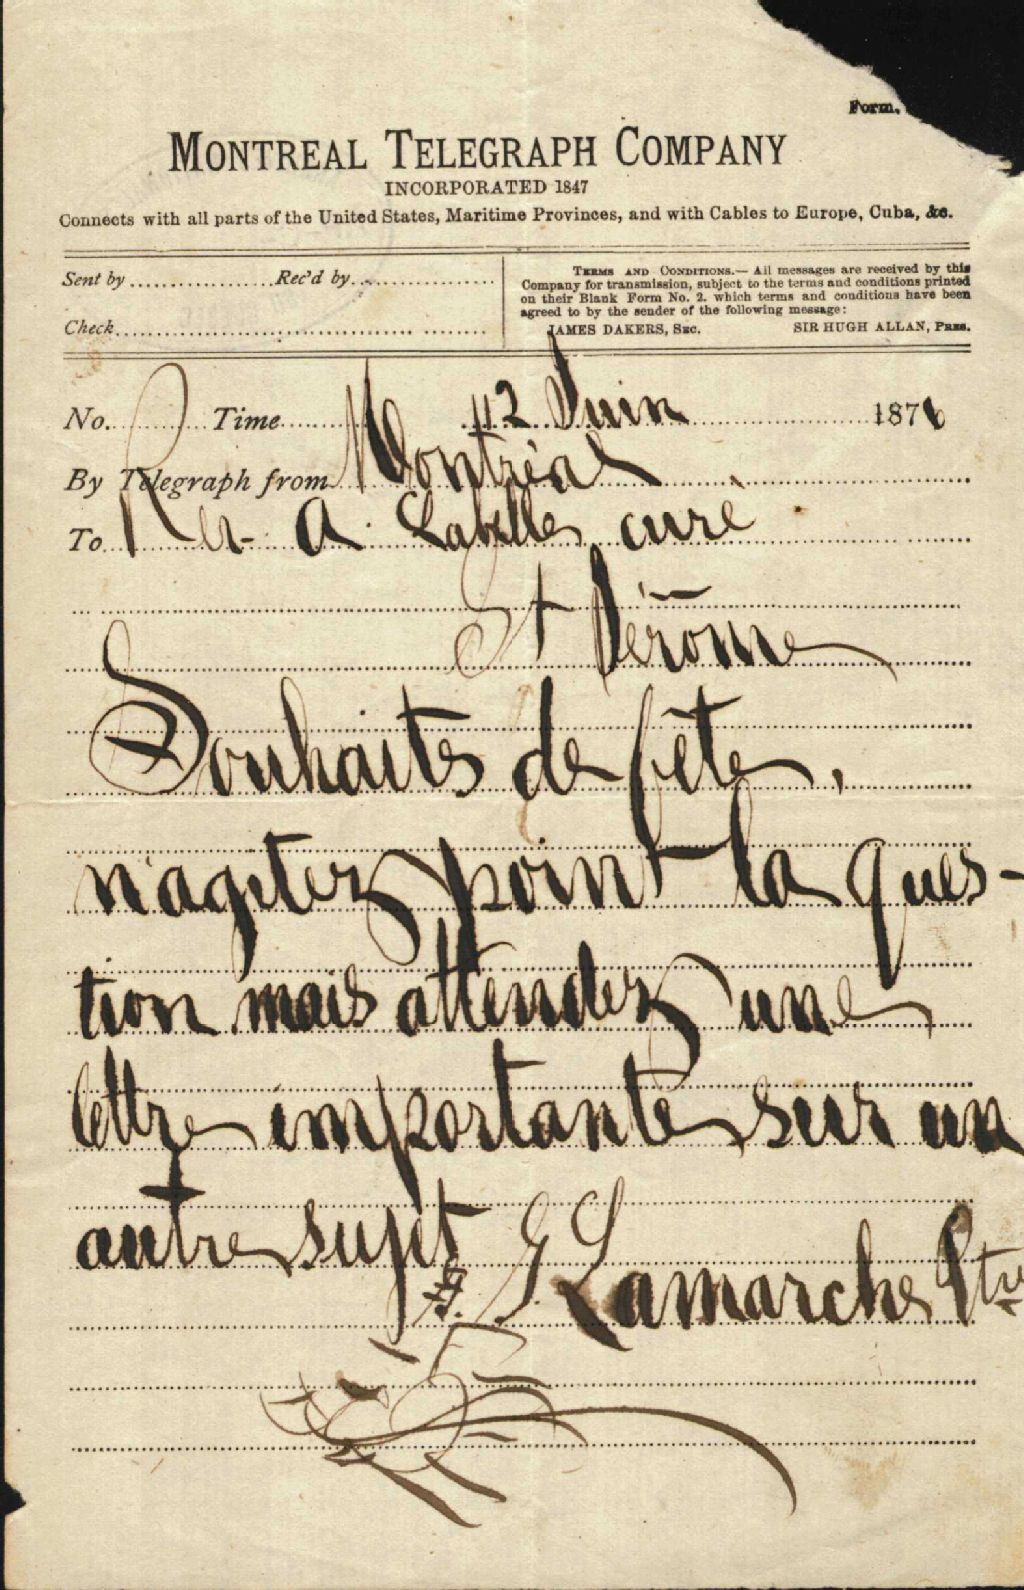 Form.
MONTREAL TELEGRAPH COMPANY
INCORPORATED 1847
Connects with all parts of the United States, Maritime Provinces, and with Cables to Europe, Cuba, &c.
Sent by Rec'd by
Check
TERMS AND CONDITIONS.— All messages are received by this
Company for transmission, subject to the terms and conditions printed
on their Blank Form No. 2. which terms and conditions have been
agreed to by the sender of the following message:
JAMES DAKERS, SEC. SIR HUGH ALLAN, PRES.
No. Time Juin 187
By Telegraph from Montréal
To Rev. A. Labelle, curé
St Jérôme
Souhaits de fête,
n'agitez point la ques-
tion mais attendez une
lettre importante sur un
autre sujet
G Lamarche Ptre